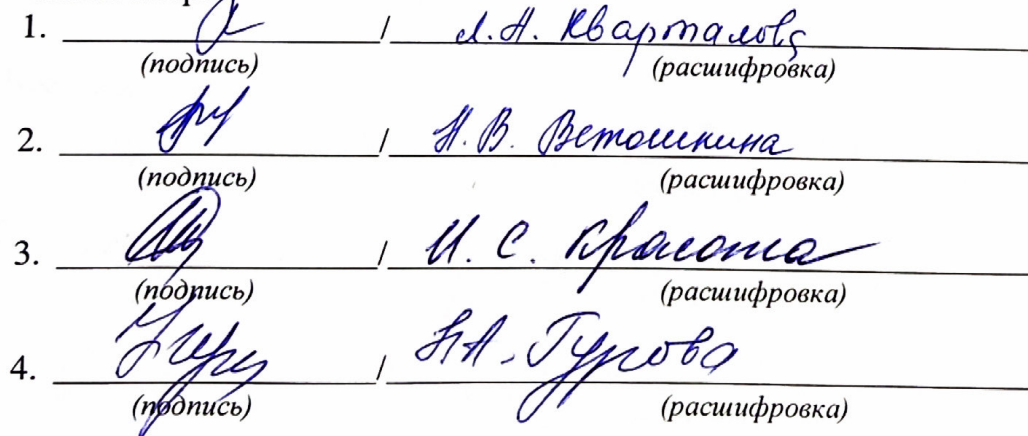 1. / Л.А. Кварталова
(подпись) (расшифровка)
2. / Н.В. Ветошкина
(подпись) (расшифровка)
3. / И.С. Красота
(подпись) (расшифровка)
4. / Н.А. Гурова
(подпись) (расшифровка)